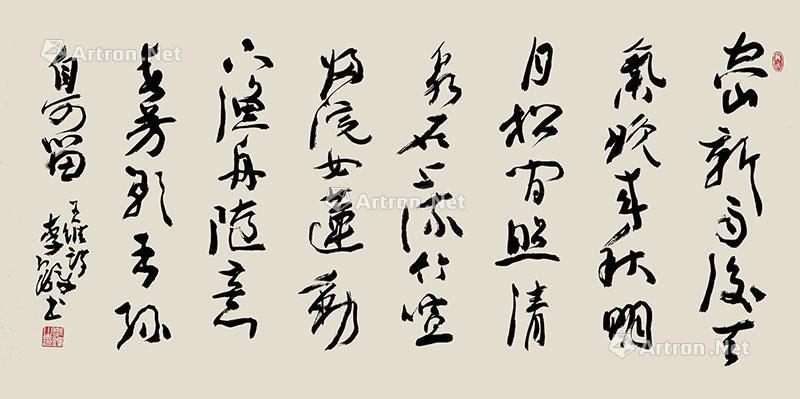 空山新雨後天
氣晚来秋明
月松间照清
泉石上流竹喧
歸浣女蓮動
下漁舟隨意
春芳歇王孫
自可留
王維詩
李 书
Artron.Net
Artron.Net
Artron.Net
Artron.Net
Artron.Net